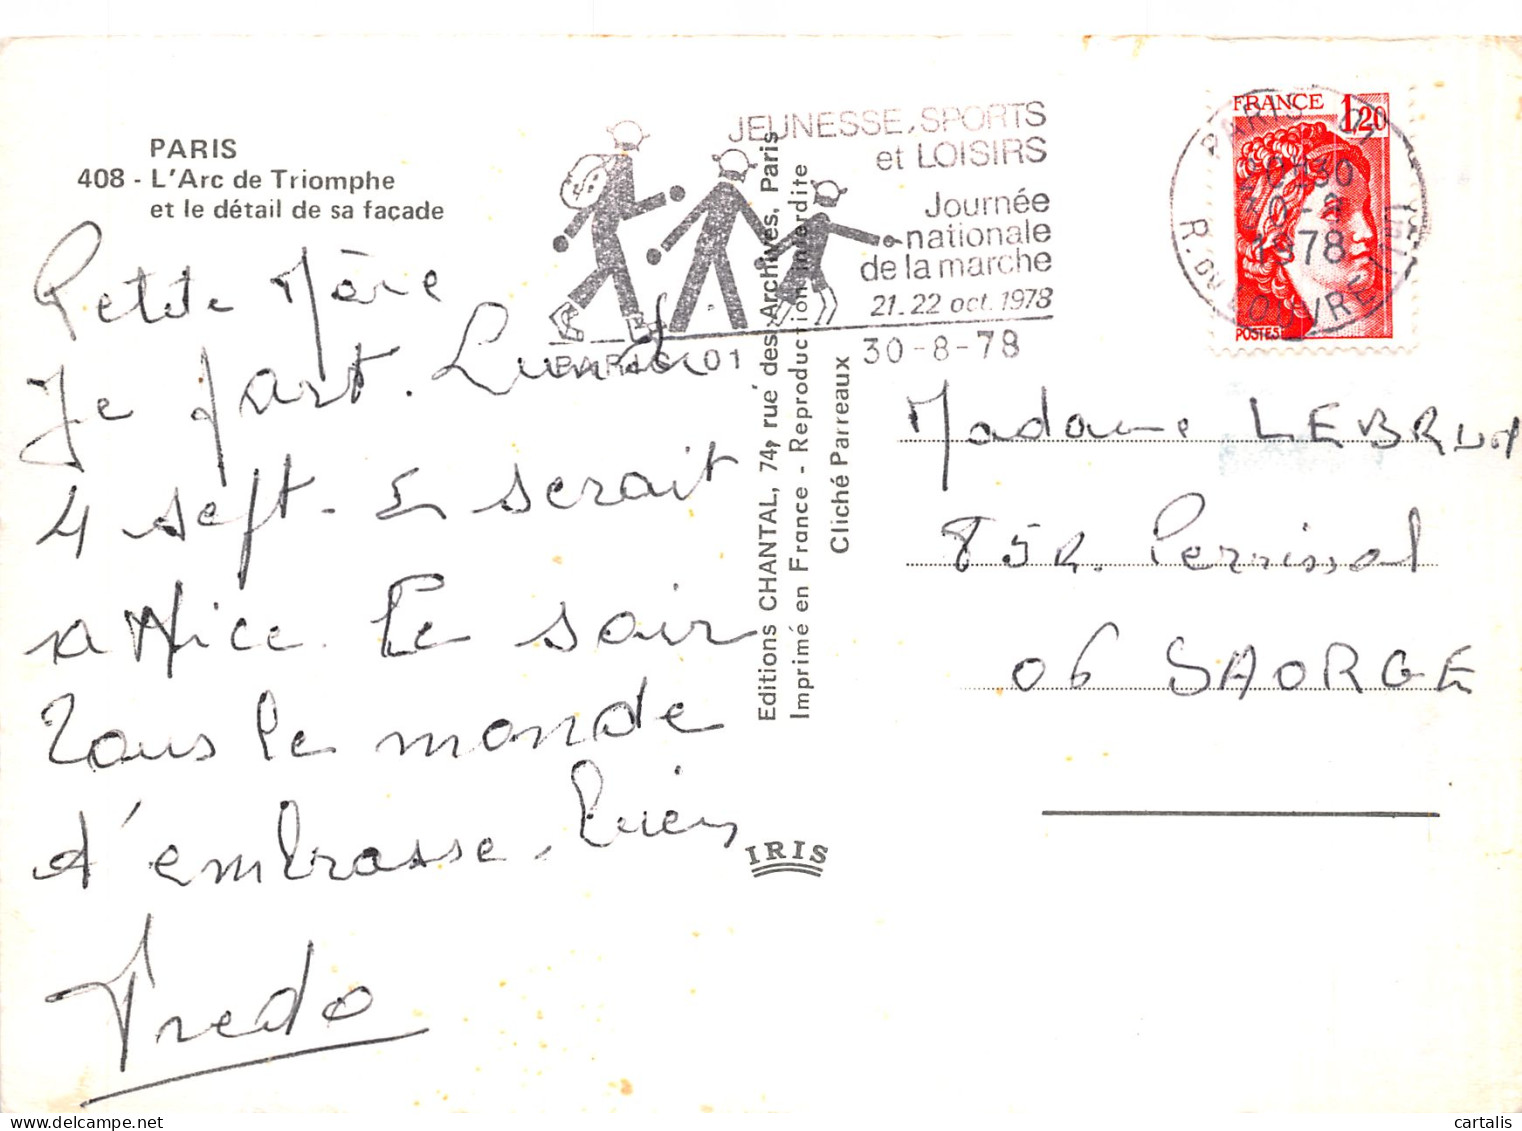 PARIS
408 - L'Arc de Triomphe
et le détail de sa façade
JEUNESSE, SPORTS
et LOISIRS
Journée
nationale
de la marche
21.22 oct. 1978
PARIS 01 30-8-78
FRANCE 1,20
POSTES
PARIS 01
30
1978
R. DU LOUVRE
Petite Mère
Je part. Lundi
4 sept. E serait
a Nice. Le soir
Tous le monde
t'embrasse.
Fredo
Editions CHANTAL, 74, rue des Archives, Paris
Imprimé en France - Reproduction interdite
Cliché Parreaux
IRIS
Madame LEBRUN
85 R. Perrissol
06 SAORGE
cartalis